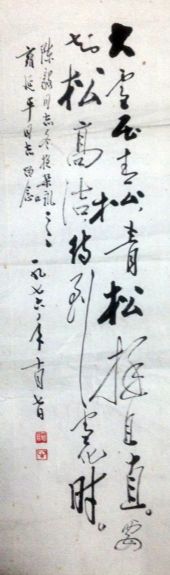 大雪压青松，青松挺且直。要
知松高洁，待到雪化时。
陈毅同志冬夜杂咏之一 一九七六年
延平同志留念